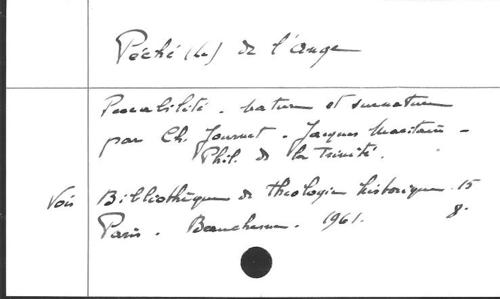 Péché (Le) de l'ange
Peccabilité. nature et surnature
par Ch. Journet - Jacques Maritain -
Phil. de la Trinité.
Vois Bibliothèque de théologie historique. 15
Paris. Beauchesne. 1961. 8.